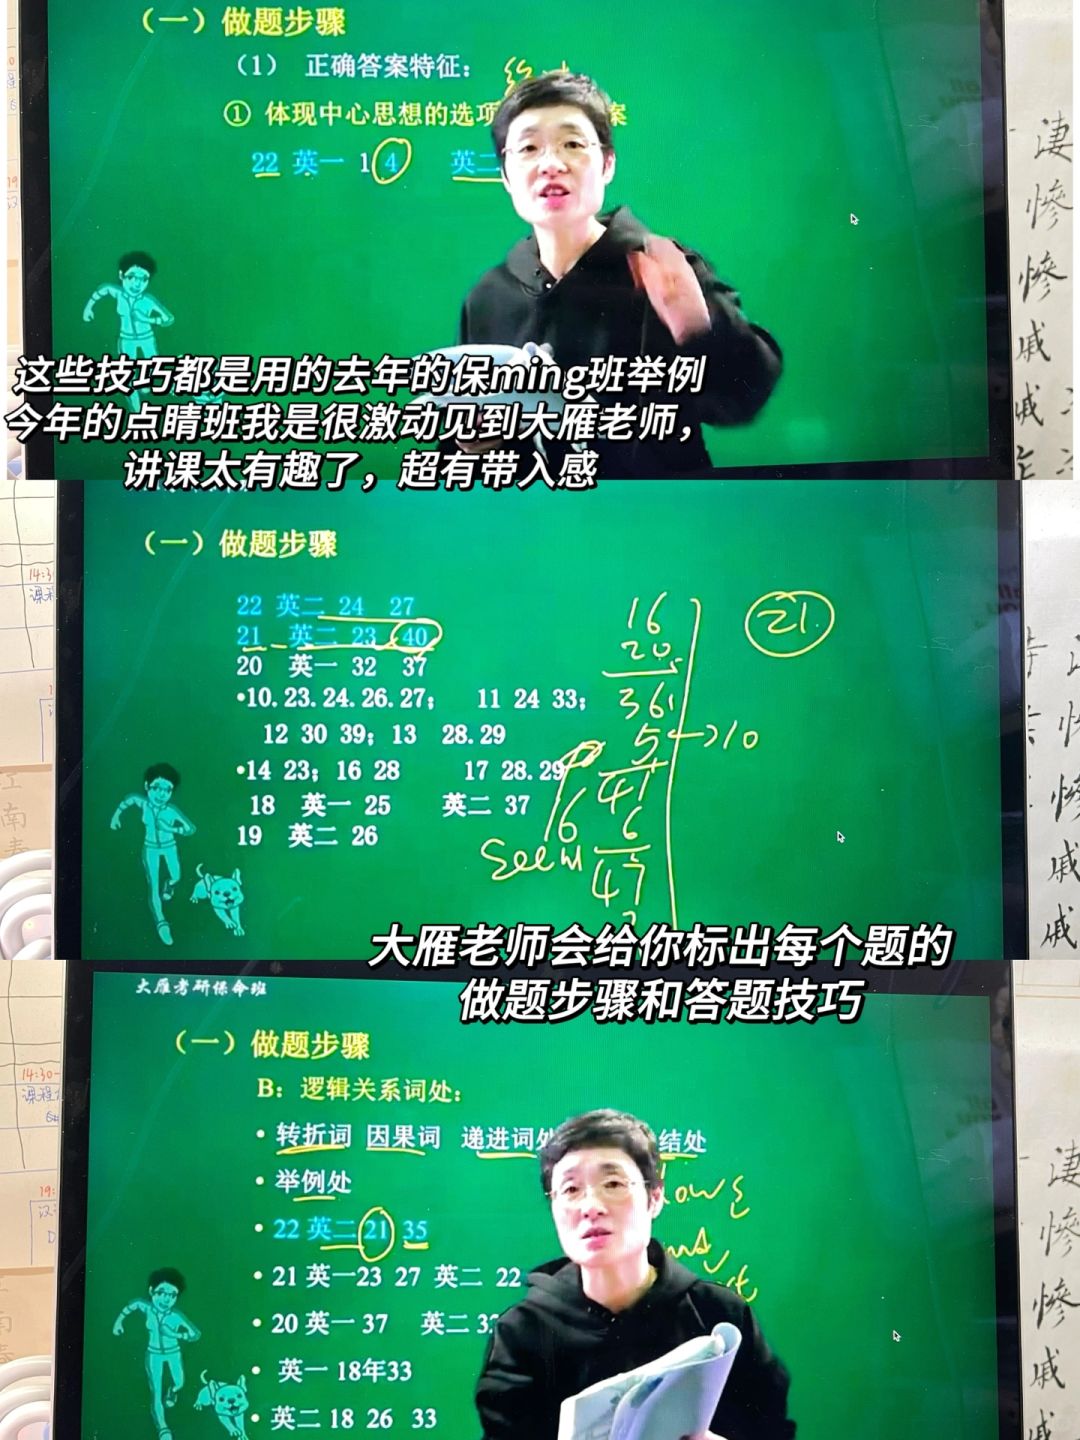 （一）做题步骤
（1） 正确答案特征：
① 体现中心思想的选项 案
22 英一 1 4 英二
这些技巧都是用的去年的保ming班举例
今年的点睛班我是很激动见到大雁老师，
讲课太有趣了，超有带入感
（一）做题步骤
22 英二 24 27
21 英二 23 40
20 英一 32 37
•10. 23. 24. 26. 27； 11 24 33；
12 30 39；13 28. 29
•14 23；16 28 17 28. 29
18 英一 25 英二 37
19 英二 26
16
20
361
5 → 10
41
6
47
16
Seem
21
大雁老师会给你标出每个题的
做题步骤和答题技巧
大雁考研保命班
（一）做题步骤
B：逻辑关系词处：
• 转折词 因果词 递进词处 结处
• 举例处
• 22 英二 21 35
• 21 英一23 27 英二 22
• 20 英一 37 英二
• 英一 18年33
• 英二 18 26 33
凄
惨
惨
戚
戚
14:30
课程
19:
江
南
春